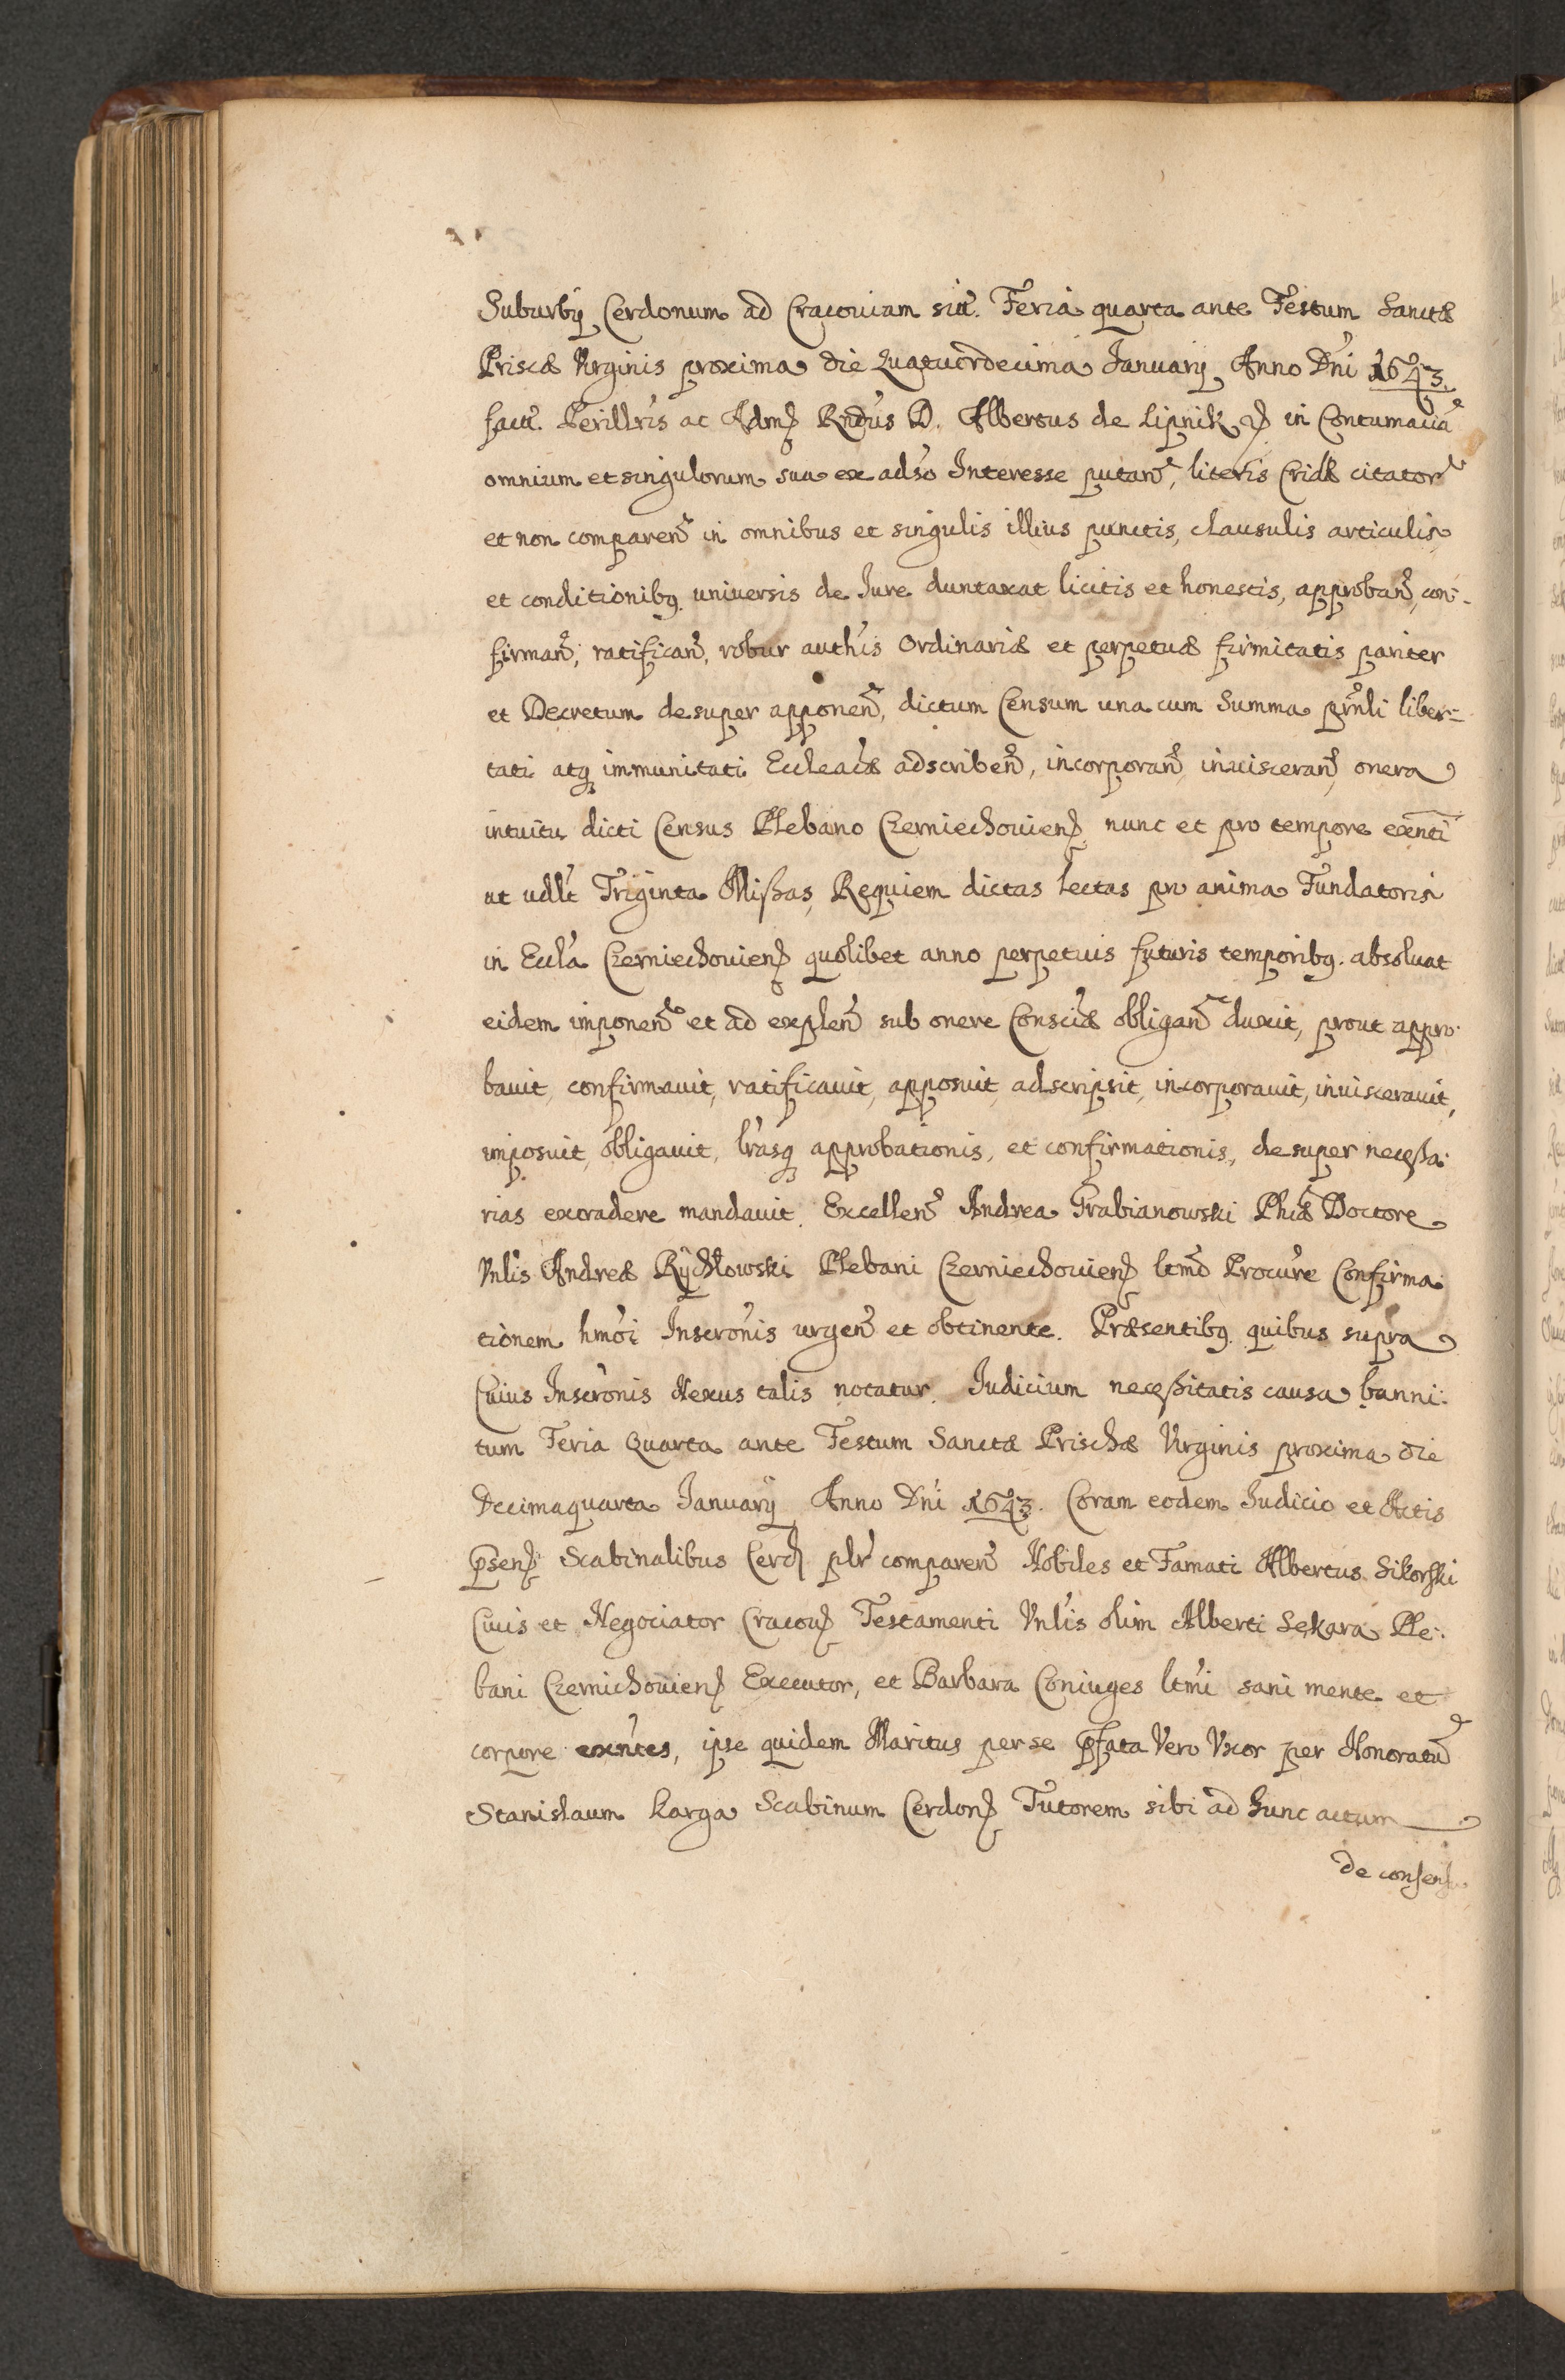 Suburbij Cerdonum ad Cracouiam sitt. Feria quarta ante Festum Sanctæ
Priscæ Virginis proxima die Quatuordecima Januarij Anno Dni 1643.
fact. Perillris ac Admß Rndus D. Albertus de Lipnik in Contumacia
omnium et singulorum sua ex adso Interesse putan, literis Cridæ citator
et non comparen in omnibus et singulis illius punctis, clausulis articulis
et conditionibq. uniuersis de Jure duntaxat licitis et honestis, approban, con-
firman, ratifican, robur authis Ordinariæ et perpetuæ firmitatis pariter
et Decretum desuper apponen, dictum Censum una cum Summa prnli liber=
tati atq immunitati Eccleacæ adscriben, incorporan, inuisceran, onera
intuitu dicti Census Plebano Czerniechouienß nunc et pro tempore exnti
ut vdlt Triginta Missas, Requiem dictas lectas pro anima Fundatoris
in Eccla Czerniechouienß quolibet anno perpetuis futuris temporibq. absoluat
eidem imponen et ad explen sub onere Consciæ obligan duxit, prout appro-
bauit, confirmauit, ratificauit, apposuit, adscripsit, incorporauit, inuiscerauit,
imposuit, obligauit, lrasq approbationis, et confirmationis, desuper necessa-
rias extradere mandauit. Excellen Andrea Grabianowski Phiæ Doctore
Vnlis Andreæ Rychłowski Plebani Czerniechouienß ltmo Procure Confirma-
tionem hmoi Inscronis urgen et obtinente. Præsentibq. quibus supra
Cuius Inscronis Nexus talis notatur. Judicium necessitatis causa banni-
tum Feria Quarta ante Festum Sanctæ Prischæ Virginis proxima die
Decimaquarta Januarij Anno Dni 1643. Coram eodem Judicio et Actis
psenß Scabinalibus Cerd plr comparen Nobiles et Famati Albertus Sikorski
Ciuis et Negociator Cracouß Testamenti Vnlis olim Alberti Sekara Ple-
bani Czernichouienß Executor, et Barbara Coniuges ltmi sani mente et
corpore exntes, ipse quidem Maritus per se pfata Vero Vxor per Honoratu
Stanislaum Karga Scabinum Cerdonß Tutorem sibi ad hunc actum
de consensu